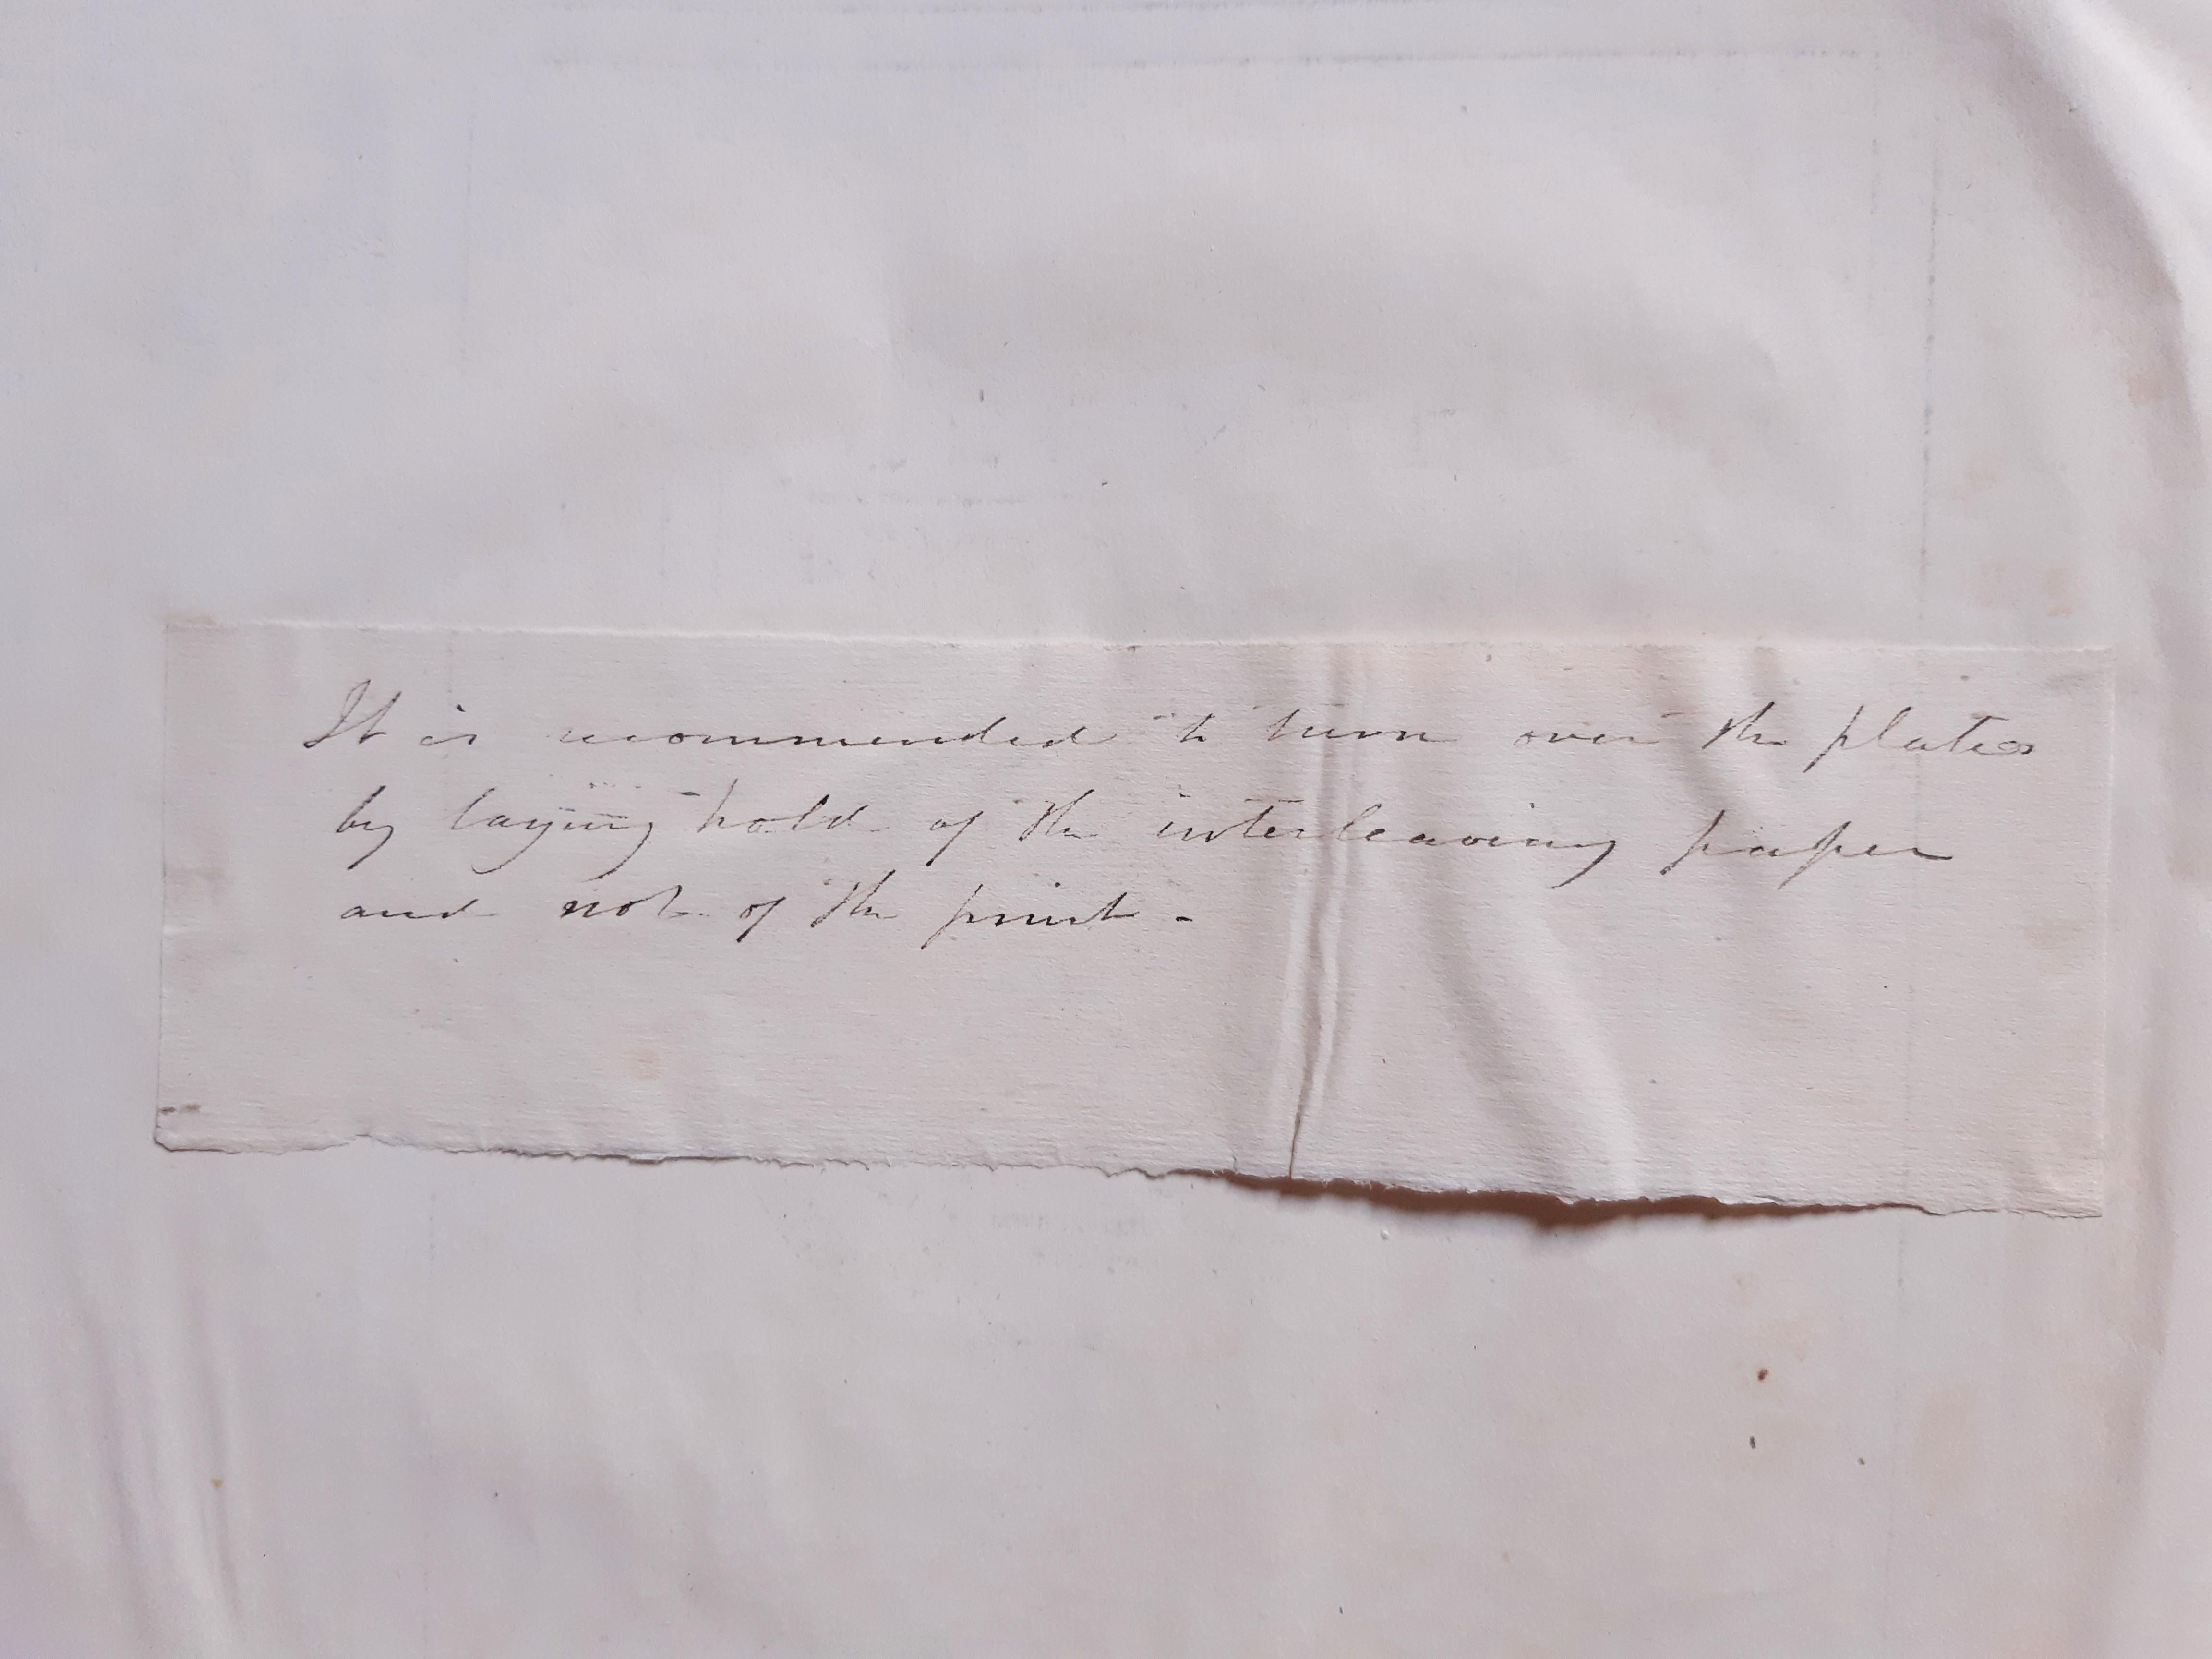 It is recommended to turn over the plates
by laying hold of the interleaving paper
and not of the print -